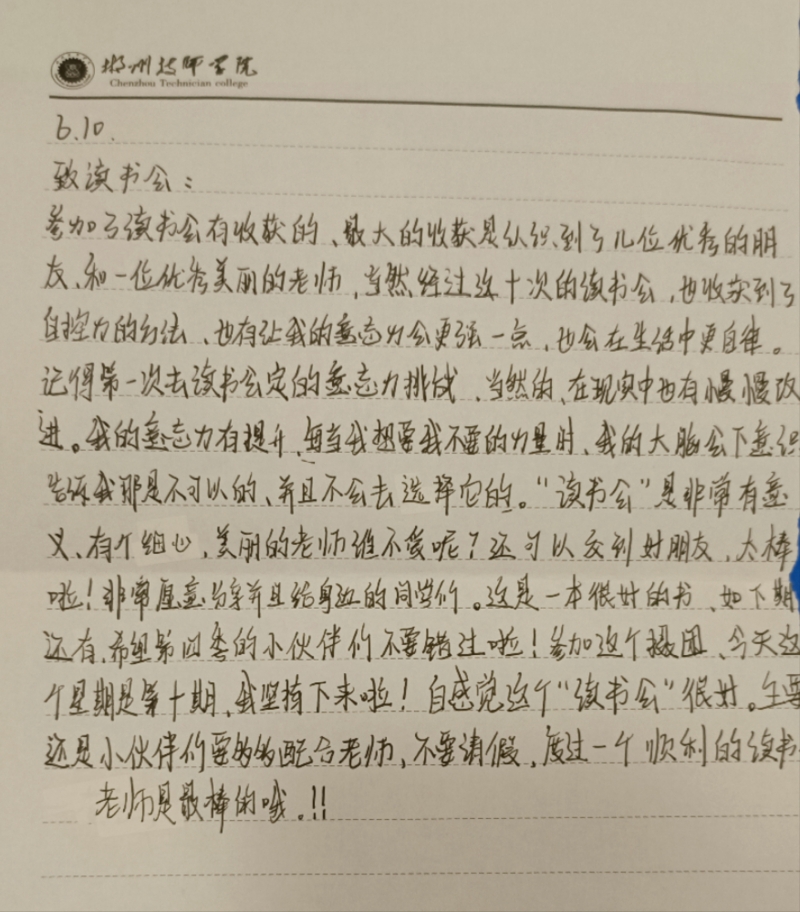 郴州技师学院
Chenzhou Technician college
6.10.
致读书会：
参加了读书会有收获的、最大的收获是认识到了几位优秀的朋
友、和一位优秀美丽的老师，当然经过这十次的读书会，也收实到了
自控力的方法、也有让我的意志力会更强一点，也会在生活中更自律。
记得第一次去读书会定的意志力挑战、当然的、在现实中也有慢慢改
进。我的意志力有提升，每当我想要我不要的力量时、我的大脑会下意识
告诉我那是不可以的、并且不会去选择它的。“读书会”是非常有意
义、有个细心，美丽的老师谁不爱呢？还可以交到好朋友，太棒
啦！非常愿意分享并且给身边的同学们。这是一本很好的书、如下期
还有，希望第四季的小伙伴们不要错过啦！参加这个摄团、今天这
个星期是第十期，我坚持下来啦！自感觉这个“读书会”很好。主要
还是小伙伴们要多多配合老师，不要请假，度过一个顺利的读书
老师是最棒的哦。!!